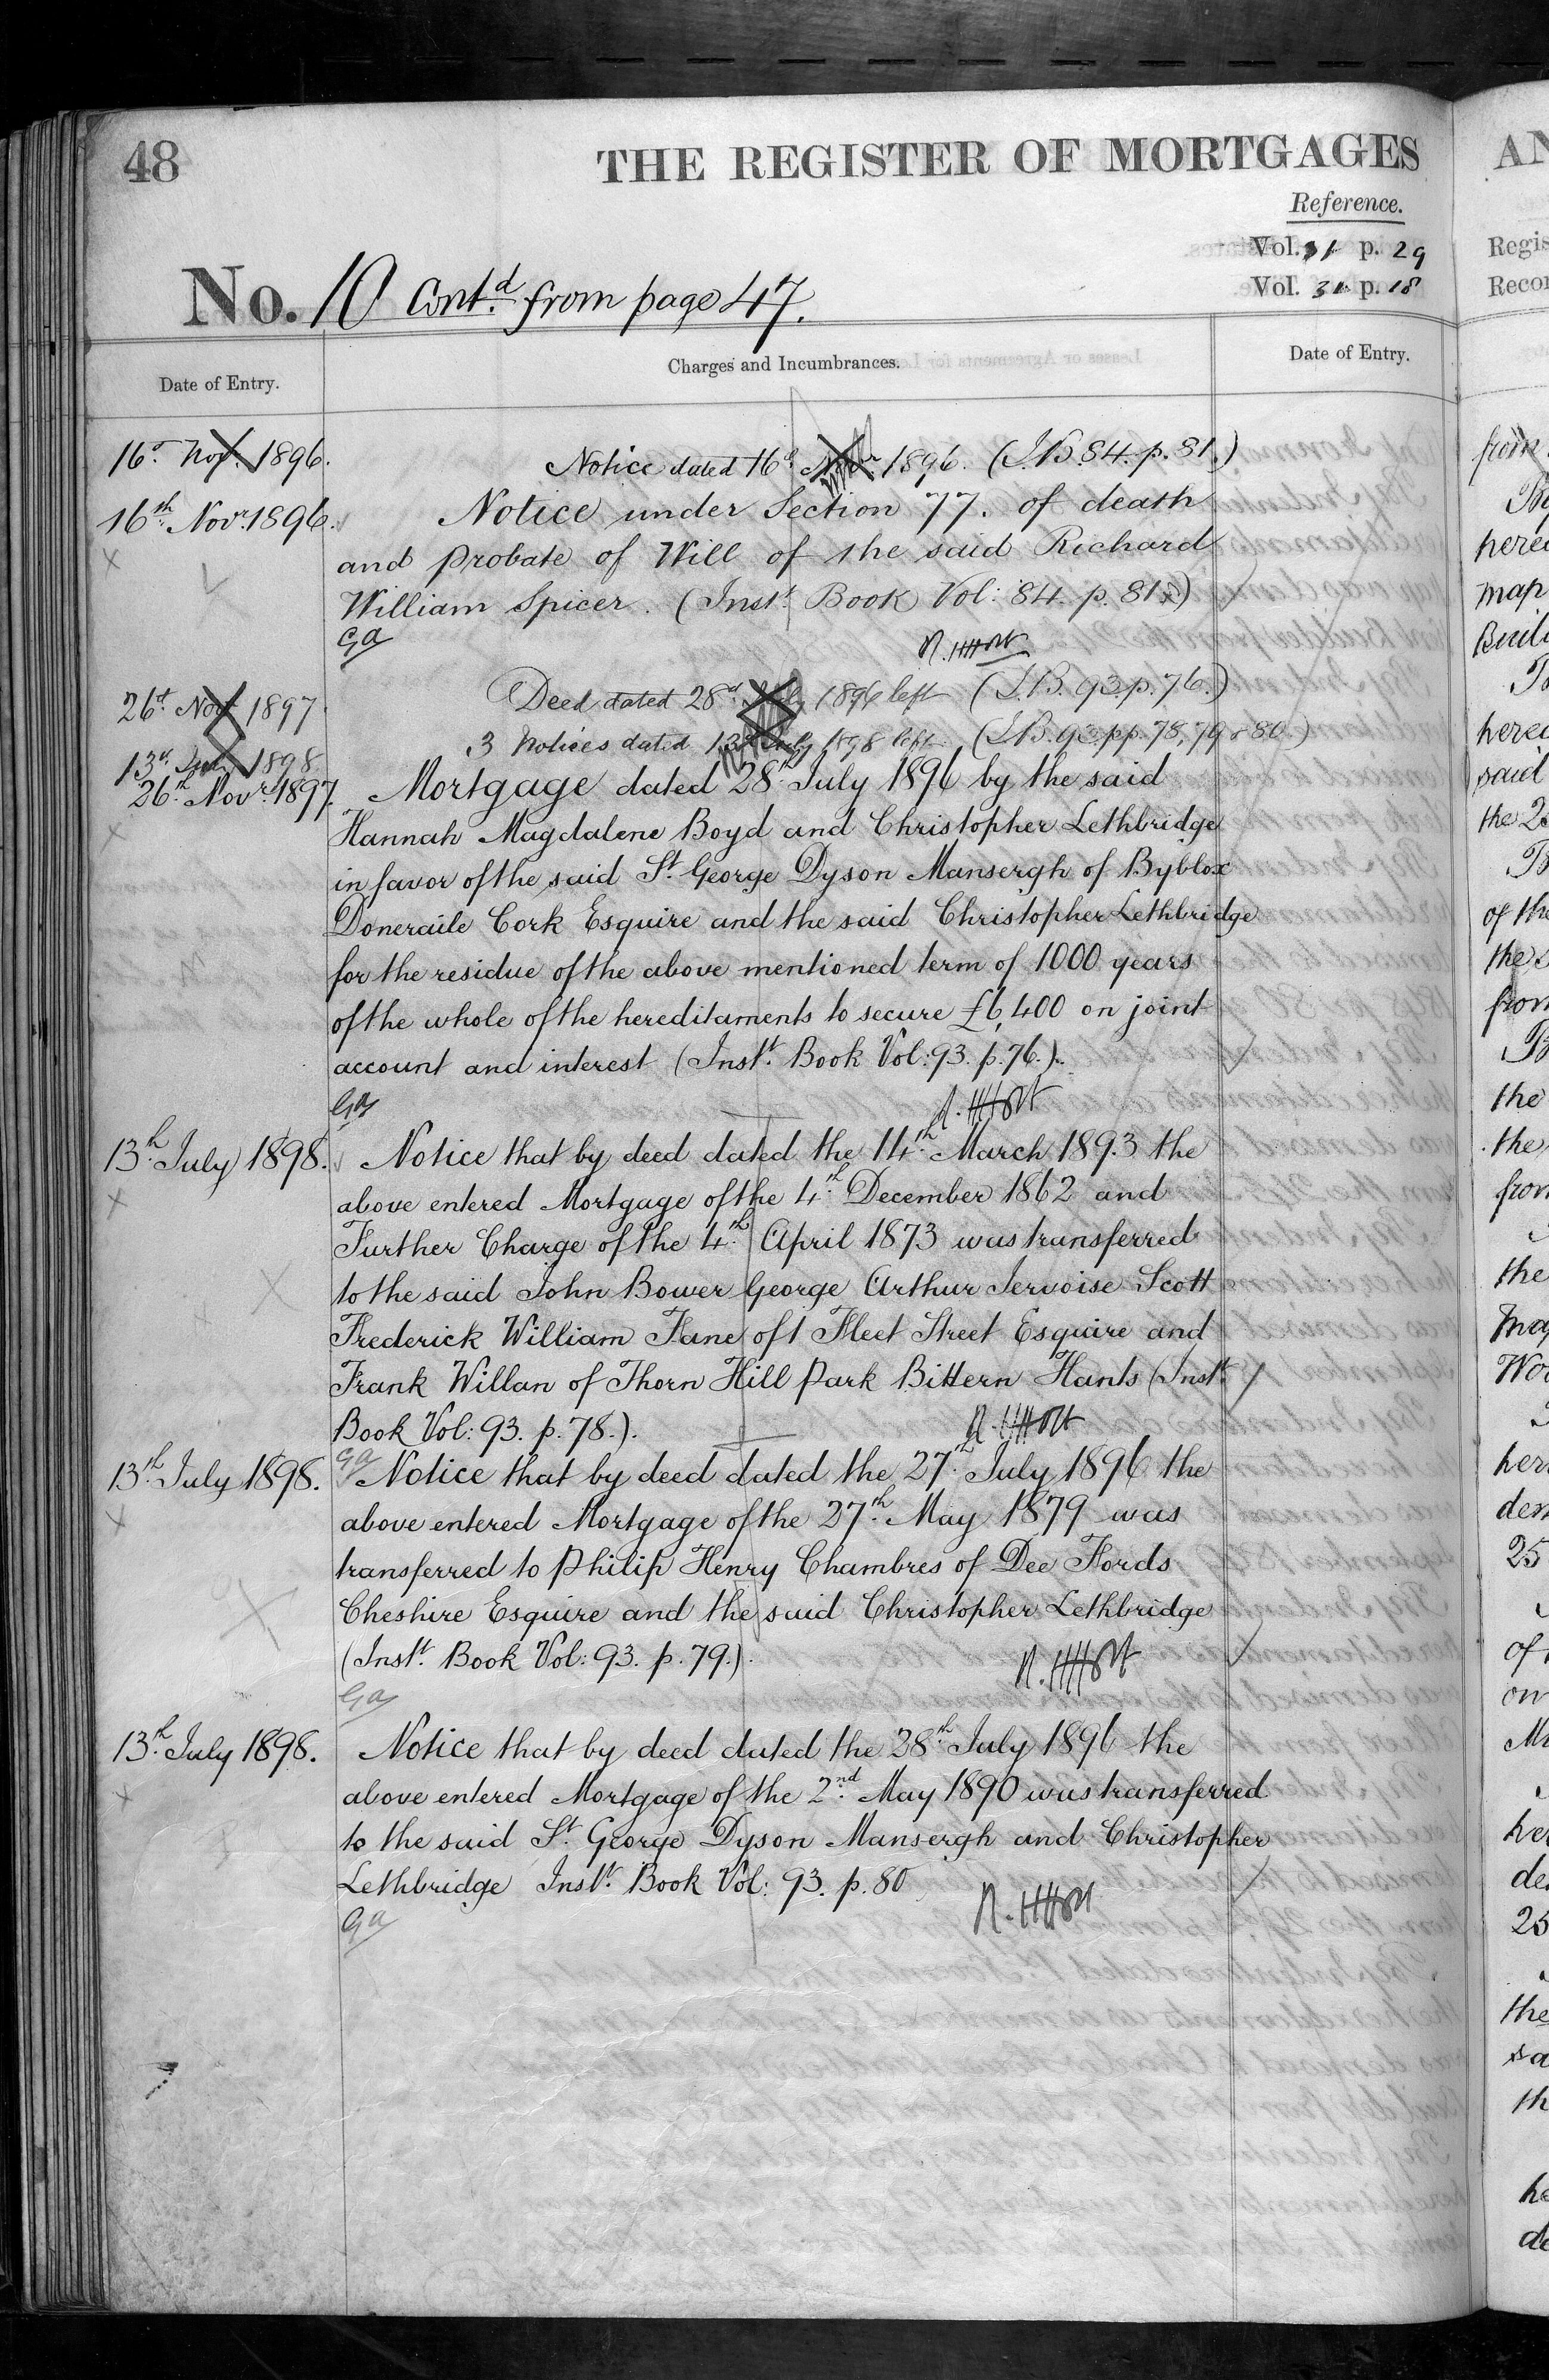 48
THE REGISTER OF MORTGAGES
Reference.
Vol. 31 p. 29
Vol. 31 p. 18
No. 10 Contd. from page 47.
Date of Entry.
Charges and Incumbrances.
Date of Entry.
16th Nov. 1896.
Notice dated 16th Nov. 1896. (I.B. 84. p. 81.)
16th Novr. 1896.
Notice under Section 77. of death
and probate of Will of the said Richard
William Spicer. (Inst. Book Vol: 84. p. 81.)
Ga
26th Nov 1897
Deed dated 28th July 1896 left (I.B. 93. p. 76.)
13th July 1898
3 Notices dated 13th July 1898 left (I.B. 93. pp. 78, 79 & 80)
26th Novr. 1897.
Mortgage dated 28th July 1896 by the said
Hannah Magdalene Boyd and Christopher Lethbridge
in favor of the said St. George Dyson Mansergh of Byblox
Doneraile Cork Esquire and the said Christopher Lethbridge
for the residue of the above mentioned term of 1000 years
of the whole of the hereditaments to secure £6,400 on joint
account and interest (Inst. Book Vol: 93. p. 76.).
Ga
13th July 1898.
Notice that by deed dated the 14th March 1893 the
above entered Mortgage of the 4th December 1862 and
Further Charge of the 4th April 1873 was transferred
to the said John Bower George Arthur Jervoise Scott
Frederick William Fane of 1 Fleet Street Esquire and
Frank Willan of Thorn Hill Park Bittern Hants (Inst.
Book Vol: 93. p. 78.).
Ga
13th July 1898.
Notice that by deed dated the 27th July 1896 the
above entered Mortgage of the 27th May 1879 was
transferred to Philip Henry Chambres of Dee Fords
Cheshire Esquire and the said Christopher Lethbridge
(Inst. Book Vol: 93. p. 79.).
Ga
13th July 1898.
Notice that by deed dated the 28th July 1896 the
above entered Mortgage of the 2nd May 1890 was transferred
to the said St. George Dyson Mansergh and Christopher
Lethbridge Inst. Book Vol: 93. p. 80
Ga